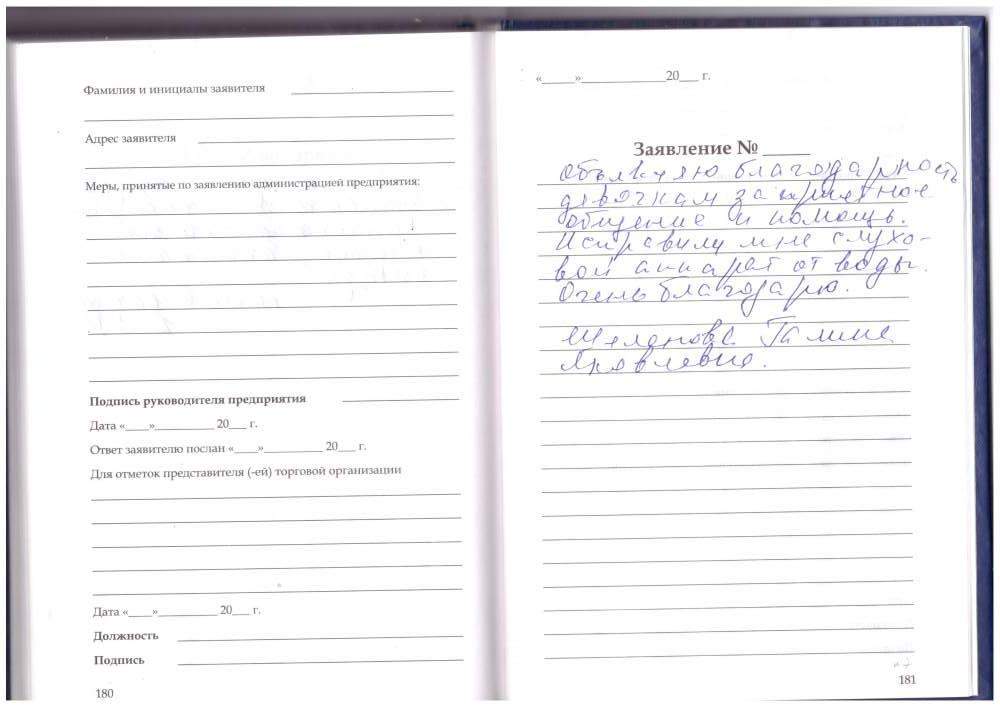 Фамилия и инициалы заявителя
Адрес заявителя
Меры, принятые по заявлению администрацией предприятия:
Подпись руководителя предприятия
Дата «____»__________ 20___ г.
Ответ заявителю послан «____»__________ 20___ г.
Для отметок представителя (-ей) торговой организации
Дата «____»__________ 20___ г.
Должность
Подпись
180
«_____»_____________20___ г.
Заявление № _____
Объявляю благодарность
девочкам за приятное
общение и помощь.
Исправили мне слухо-
вой аппарат от воды.
Очень благодарю.
Галина
Яковлевна.
181